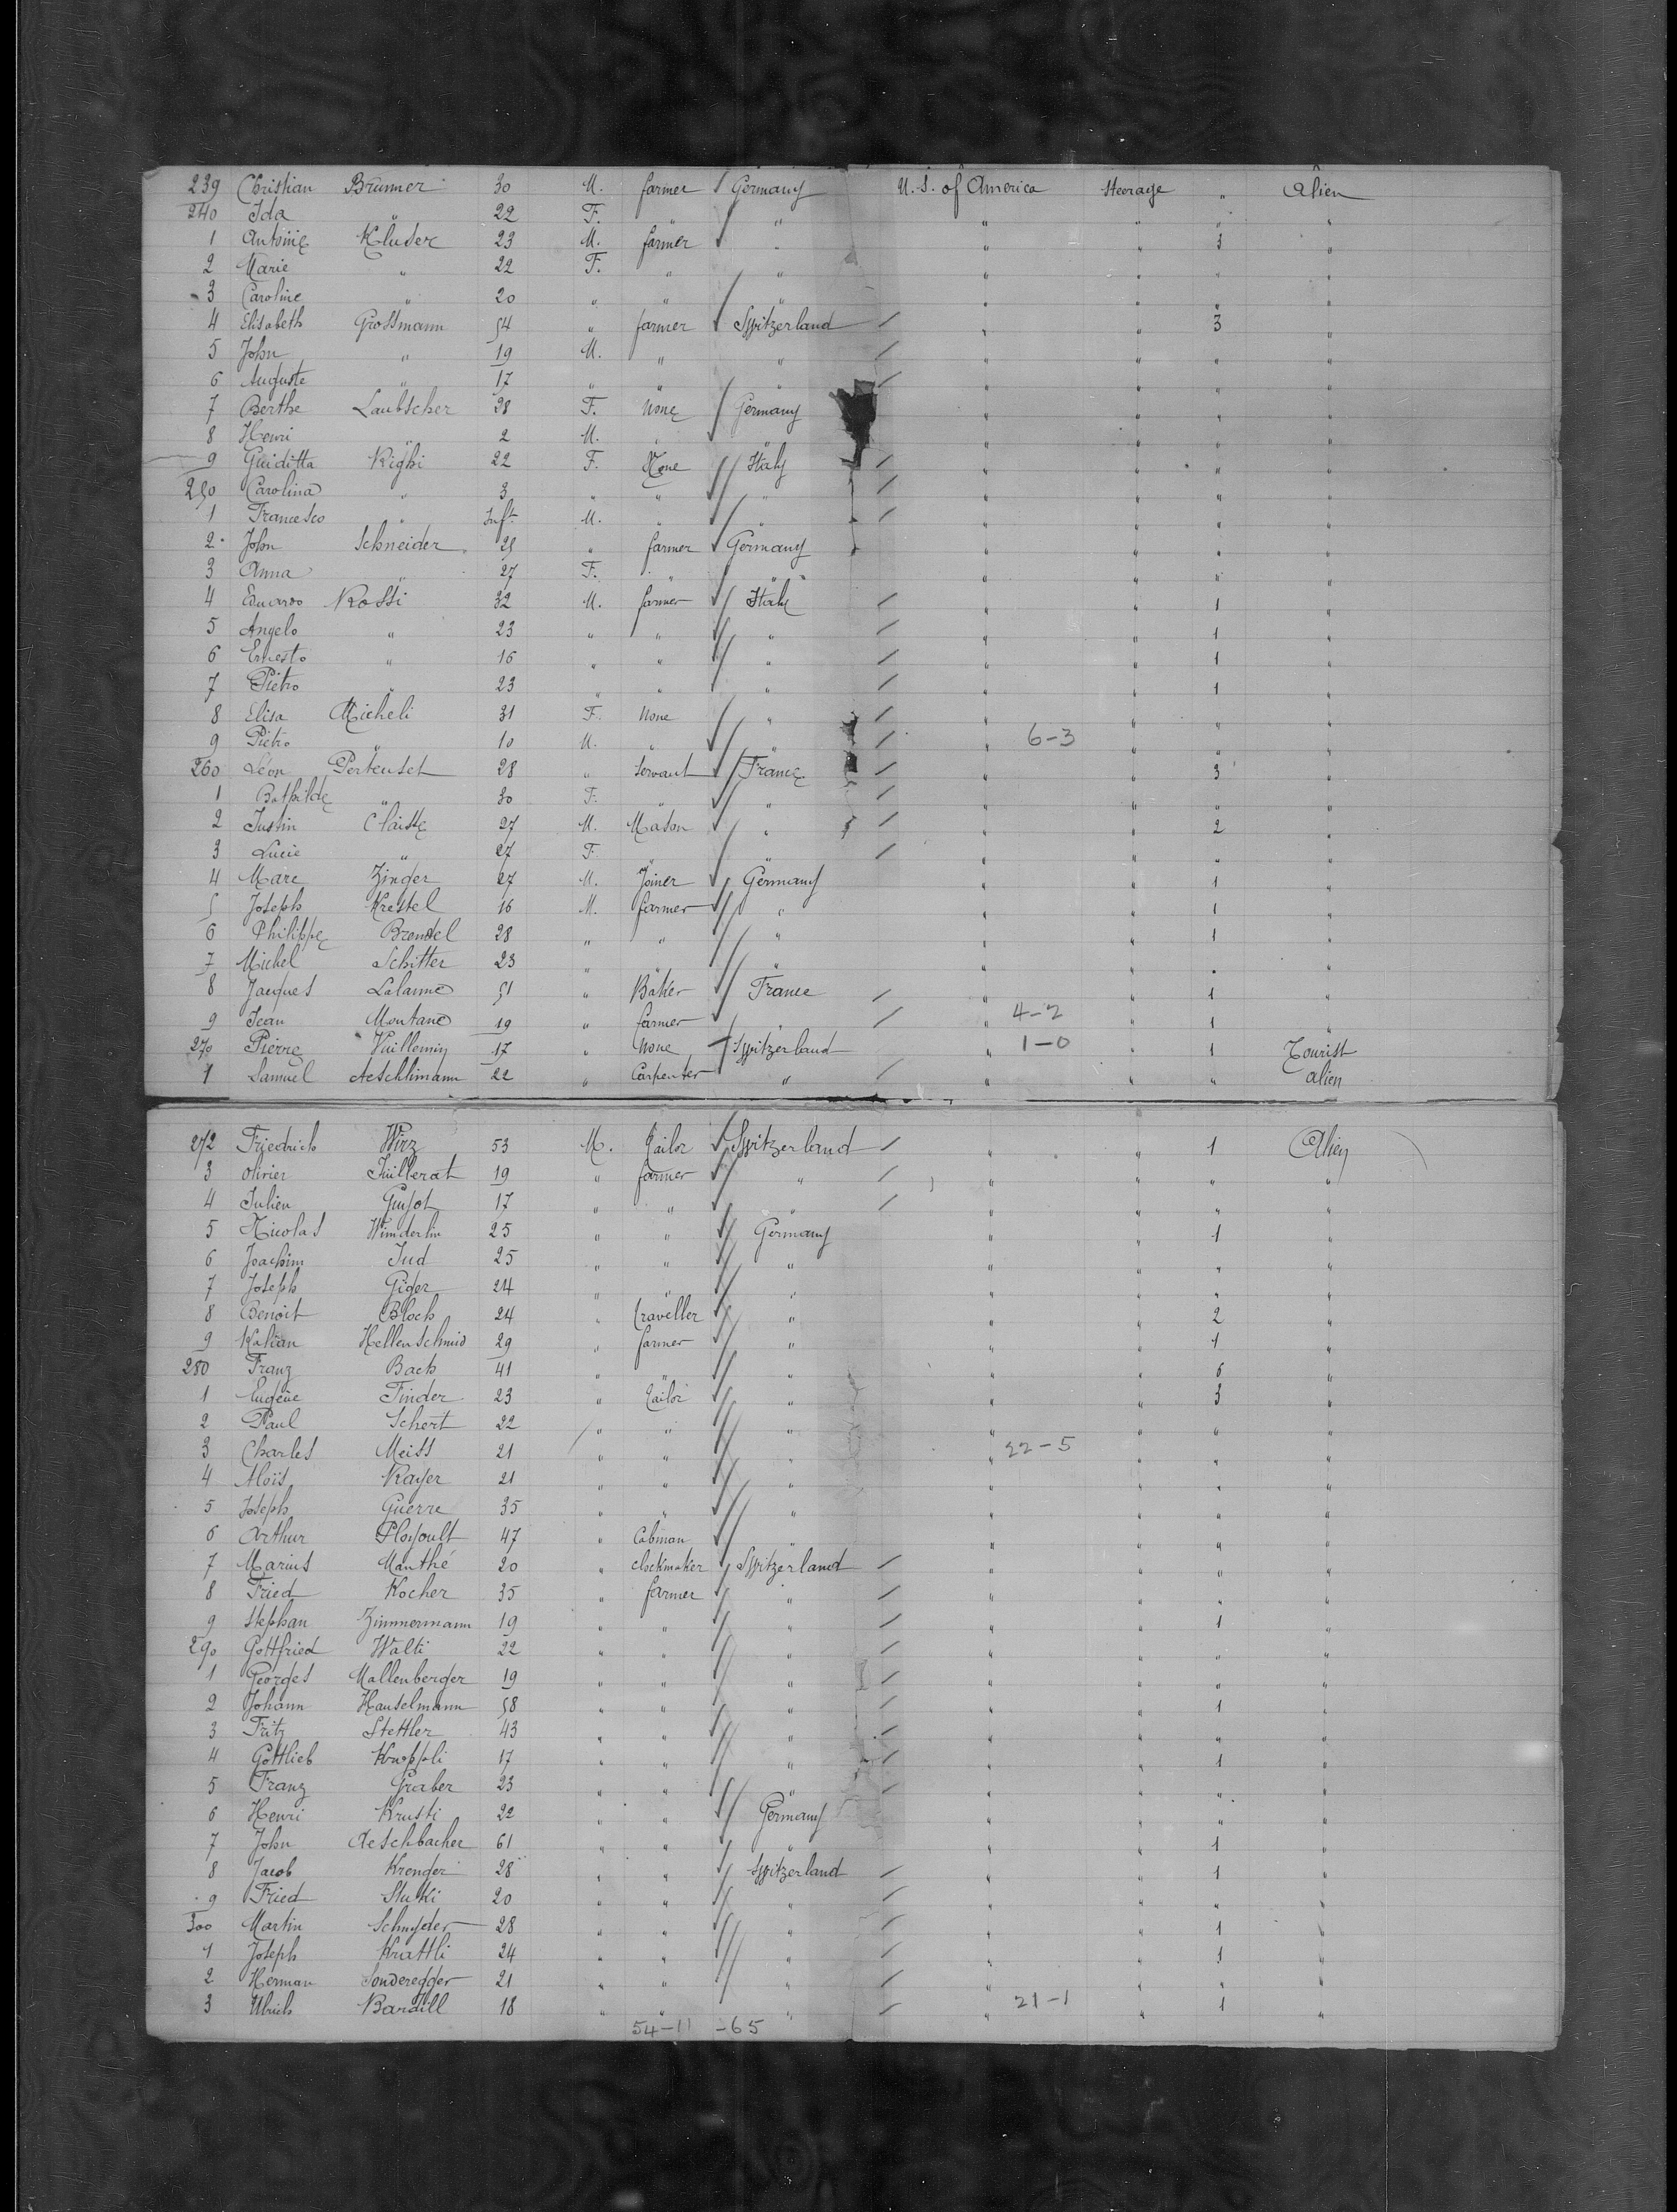 239 Christian Brunner 30 M. farmer Germany U.S. of America Steerage " Alien
240 Ida " 22 F. " " " " " "
1 Antoine Kluser 23 M. farmer " " " 3 "
2 Marie " 22 F. " " " " " "
3 Caroline " 20 " " " " " " "
4 Elisabeth Grossmann 54 " farmer Switzerland " " 3 "
5 John " 19 M. " " " " " "
6 Auguste " 17 " " " " " " "
7 Berthe Laubscher 28 F. None Germany " " " "
8 Henri " 2 M. " " " " " "
9 Guiditta Righi 22 F. None Italy " " " "
250 Carolina " 3 " " " " " " "
1 Francesco " Inft. M. " " " " " "
2 John Schneider 25 " farmer Germany " " " "
3 Anna " 27 F. " " " " " "
4 Eduardo Rossi 32 M. farmer Italy " " 1 "
5 Angelo " 23 " " " " " 1 "
6 Ernesto " 16 " " " " " 1 "
7 Pietro " 23 " " " " " 1 "
8 Elisa Micheli 31 F. None " " " " "
9 Pietro " 10 M. " " " 6-3 " " "
260 Léon Pertenset 28 " Servant France " " 3 "
1 Bathilde " 30 F. " " " " " "
2 Justin Claisse 27 M. Mason " " " 2 "
3 Lucie " 27 F. " " " " " "
4 Marc Zinger 27 M. Joiner Germany " " 1 "
5 Joseph Krestel 16 M. farmer " " " 1 "
6 Philippe Brendel 28 " " " " " 1 "
7 Michel Schitter 23 " " " " " " "
8 Jacques Lalanne 51 " Baker France " " 1 "
9 Jean Montané 19 " farmer " " 4-2 " 1 "
270 Pierre Vuillemin 17 " None Switzerland " 1-0 " 1 Tourist
1 Samuel Aeschlimann 22 " Carpenter " " " " alien
272 Friedrich Wirz 53 M. Tailor Switzerland " " 1 Alien
3 Olivier Juillerat 19 " farmer " " " " "
4 Julien Guyot 17 " " " " " " "
5 Nicolas Wunderlin 25 " " Germany " " 1 "
6 Joachim Jud 25 " " " " " " "
7 Joseph Giger 24 " " " " " " "
8 Benoit Bloch 24 " traveller " " " 2 "
9 Hellenschmid 29 " farmer " " " 1 "
280 Franz Bach 41 " " " " " 6 "
1 Eugène Finder 23 " Tailor " " " 3 "
2 Paul Schert 22 " " " " " " "
3 Charles Meiss 21 " " " " 22-5 " " "
4 Aloïs Kayser 21 " " " " " " "
5 Joseph Guerre 35 " " " " " " "
6 Arthur 47 " Cabman " " " " "
7 Marius Manthé 20 " clockmaker Switzerland " " " "
8 Fried Kocher 35 " farmer " " " " "
9 Stephan Zimmermann 19 " " " " " 1 "
290 Gottfried Walti 22 " " " " " " "
1 Georges Mallenberger 19 " " " " " " "
2 Johann Hanselmann 58 " " " " " 1 "
3 Fritz Stettler 43 " " " " " " "
4 Gottlieb Knöppli 17 " " " " " 1 "
5 Franz Graber 23 " " " " " " "
6 Henri Krusti 22 " " Germany " " " "
7 John Aeschbacher 61 " " " " " 1 "
8 Jacob Krenger 28 " " Switzerland " " 1 "
9 Fried Stuki 20 " " " " " " "
300 Martin Schnyder 28 " " " " " 1 "
1 Joseph Krattli 24 " " " " " 1 "
2 Herman Sonderegger 21 " " " " " " "
3 Ulrich Bardill 18 " " " " 21-1 " 1 "
54-11 -65